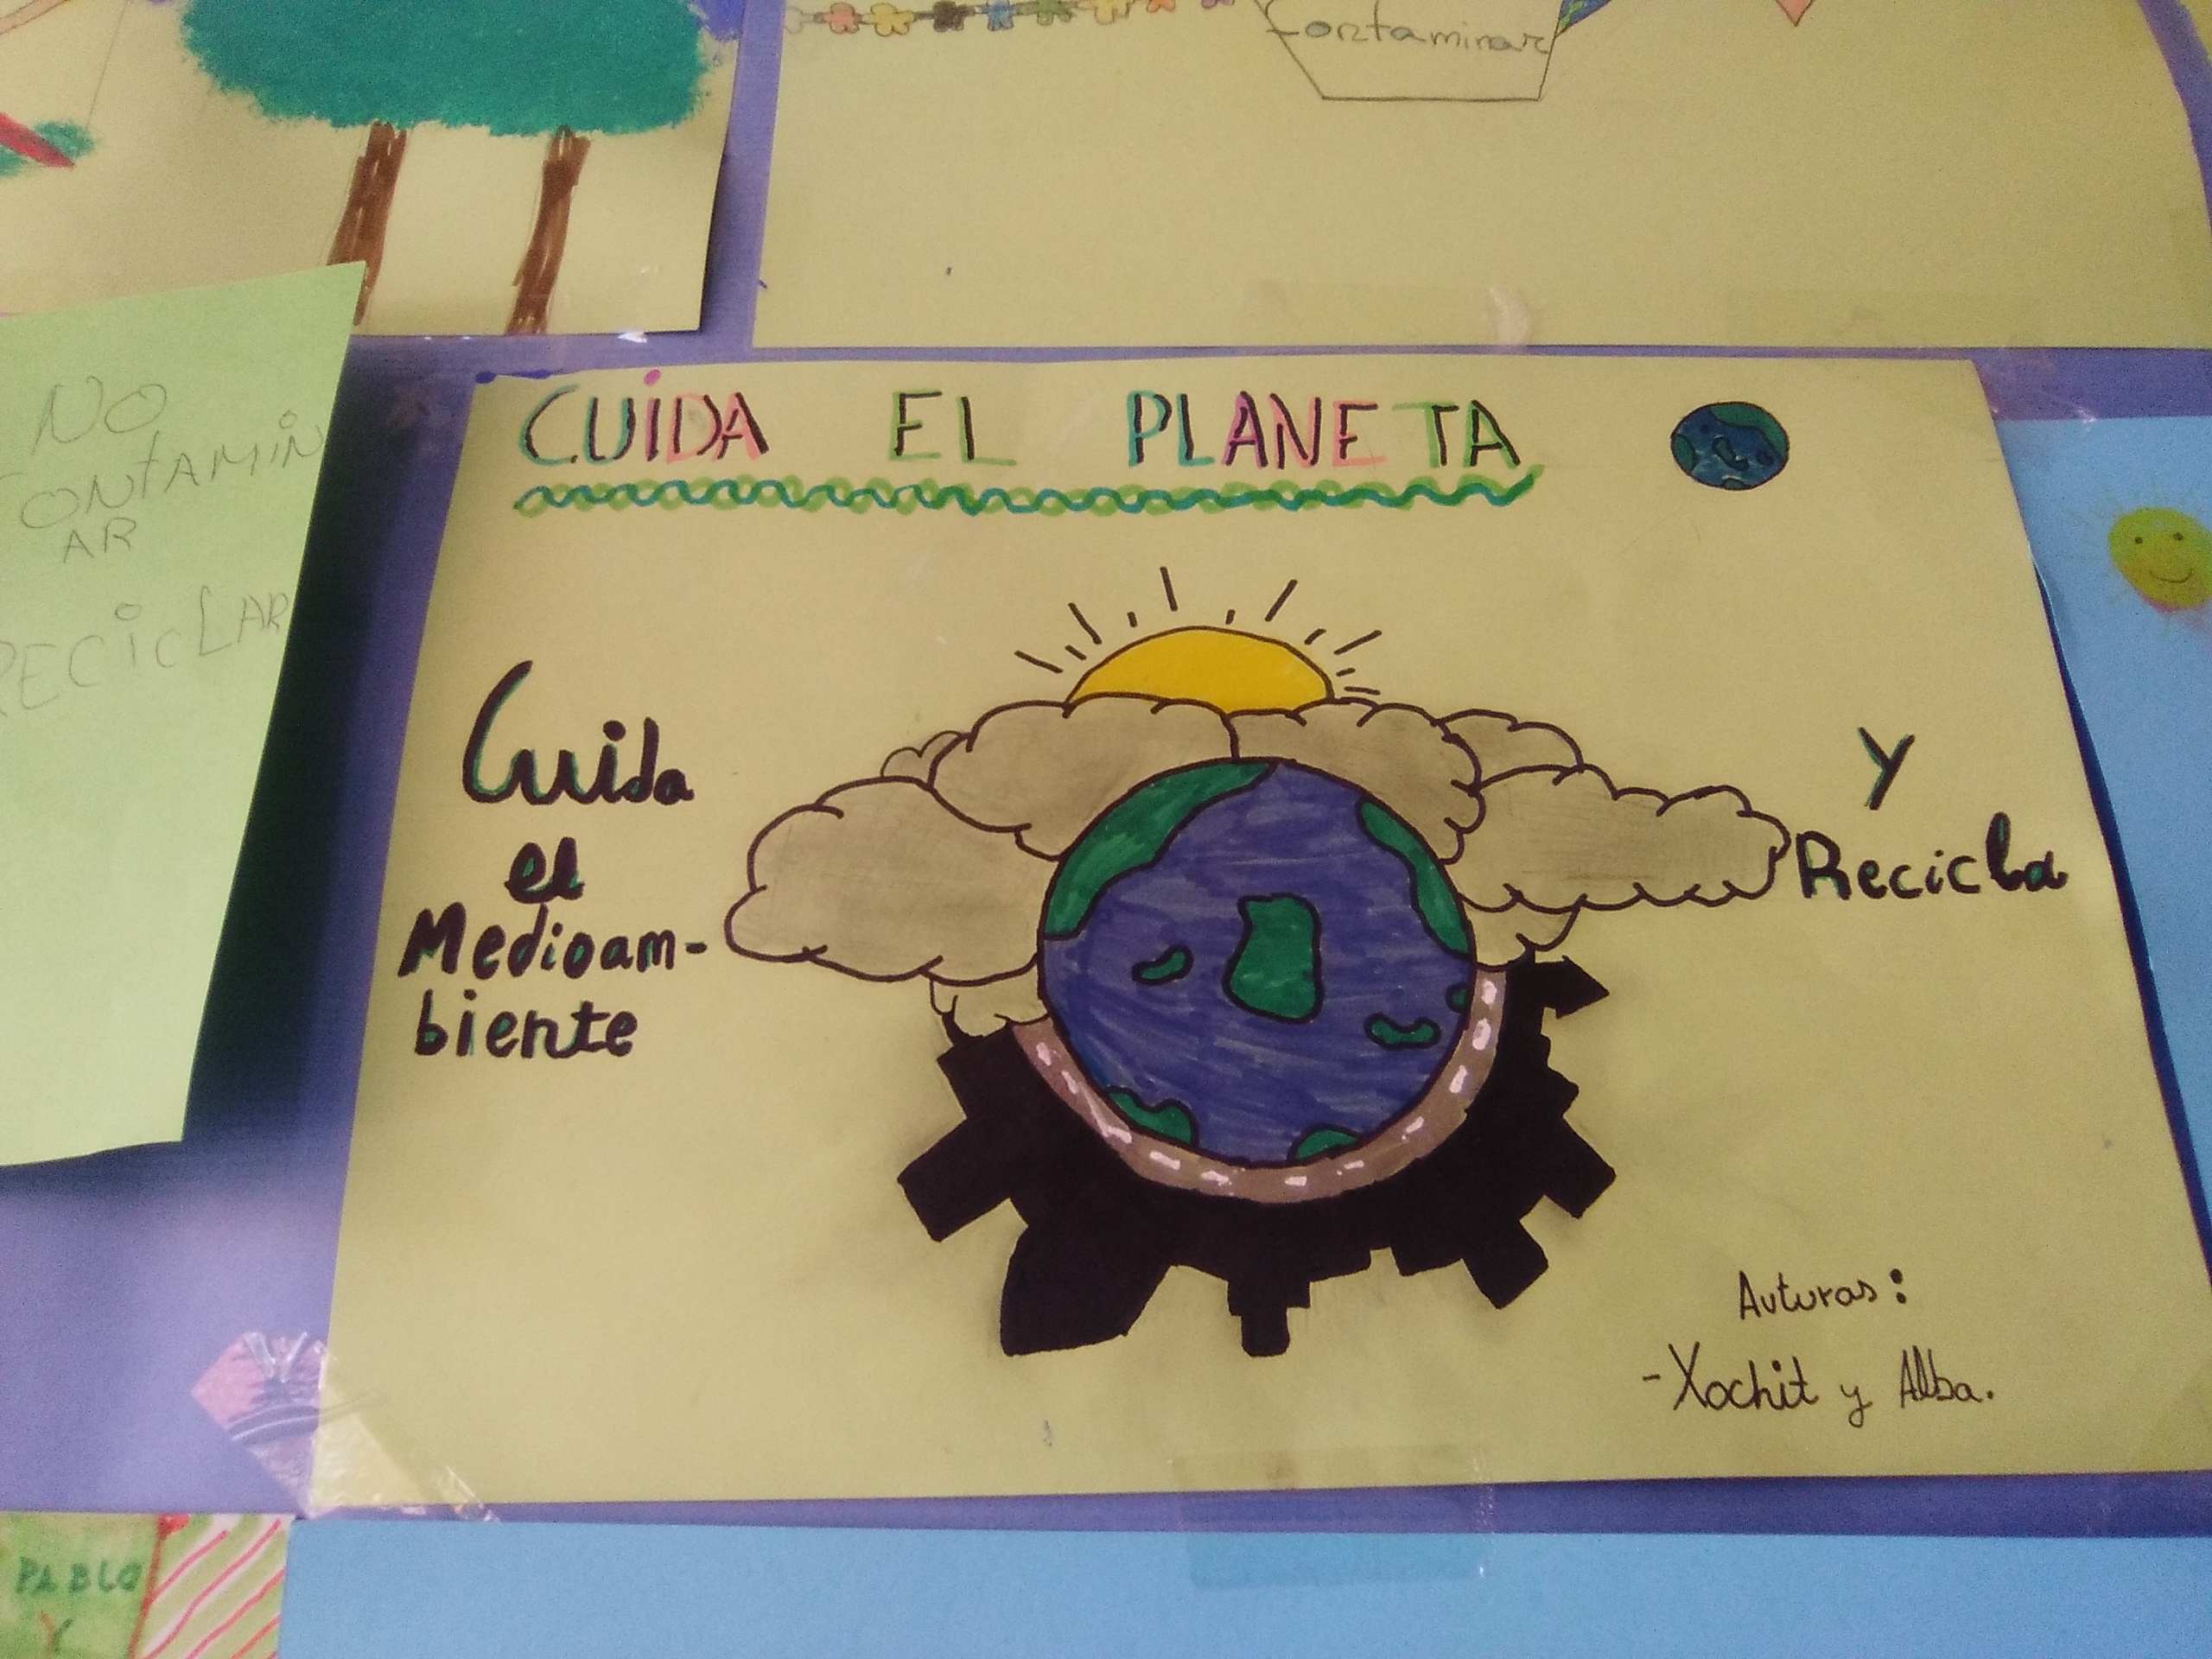 contaminar
NO
CONTAMIN
AR
RECICLAR
CUIDA EL PLANETA
Cuida
el
Medioam-
biente
Y
Recicla
Auturas:
-Xochit y Alba.
PABLO
Y